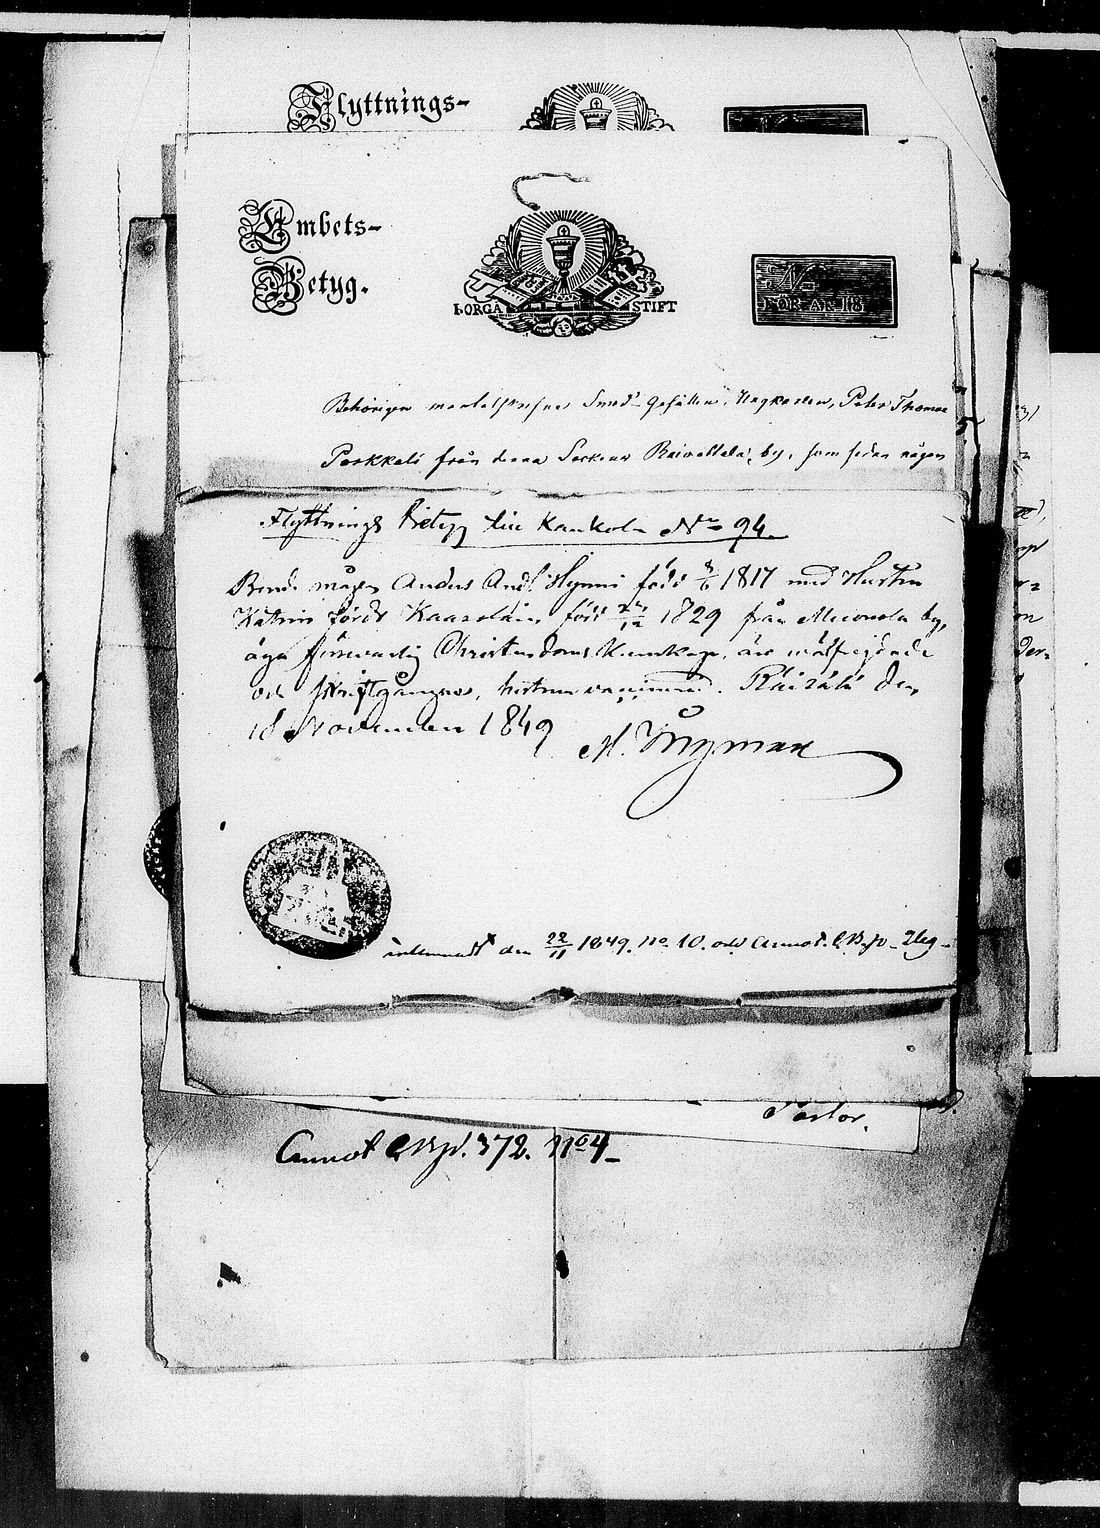 Flyttnings-
Embets-
Betyg.
BORGÅ STIFT
No
FÖR ÅR 18
Behörigen mantalskrifne Smed-Gesällen, Ungkarlen, Peter Thomas
Perkkeli från dena Sockens Raivattala by, som sedan någon
Flyttnings Betyg till Kaukola No 94.
Bonde mågen Anders And. Hynni född 3/6 1817 med Hustru
Katrin förds Kaasolain född 1829 från by,
äga försvarlig Christendoms Kunskap, äro välfrejdade
och skriftgångne, hustrun vaccinerad. Räisälä den
18 November 1849 M. Ingman
inlemnadt den 22/11 1849. No 10. och Annot. C.B. p.
Pastor.
Annot C.B. p. 372. No 4